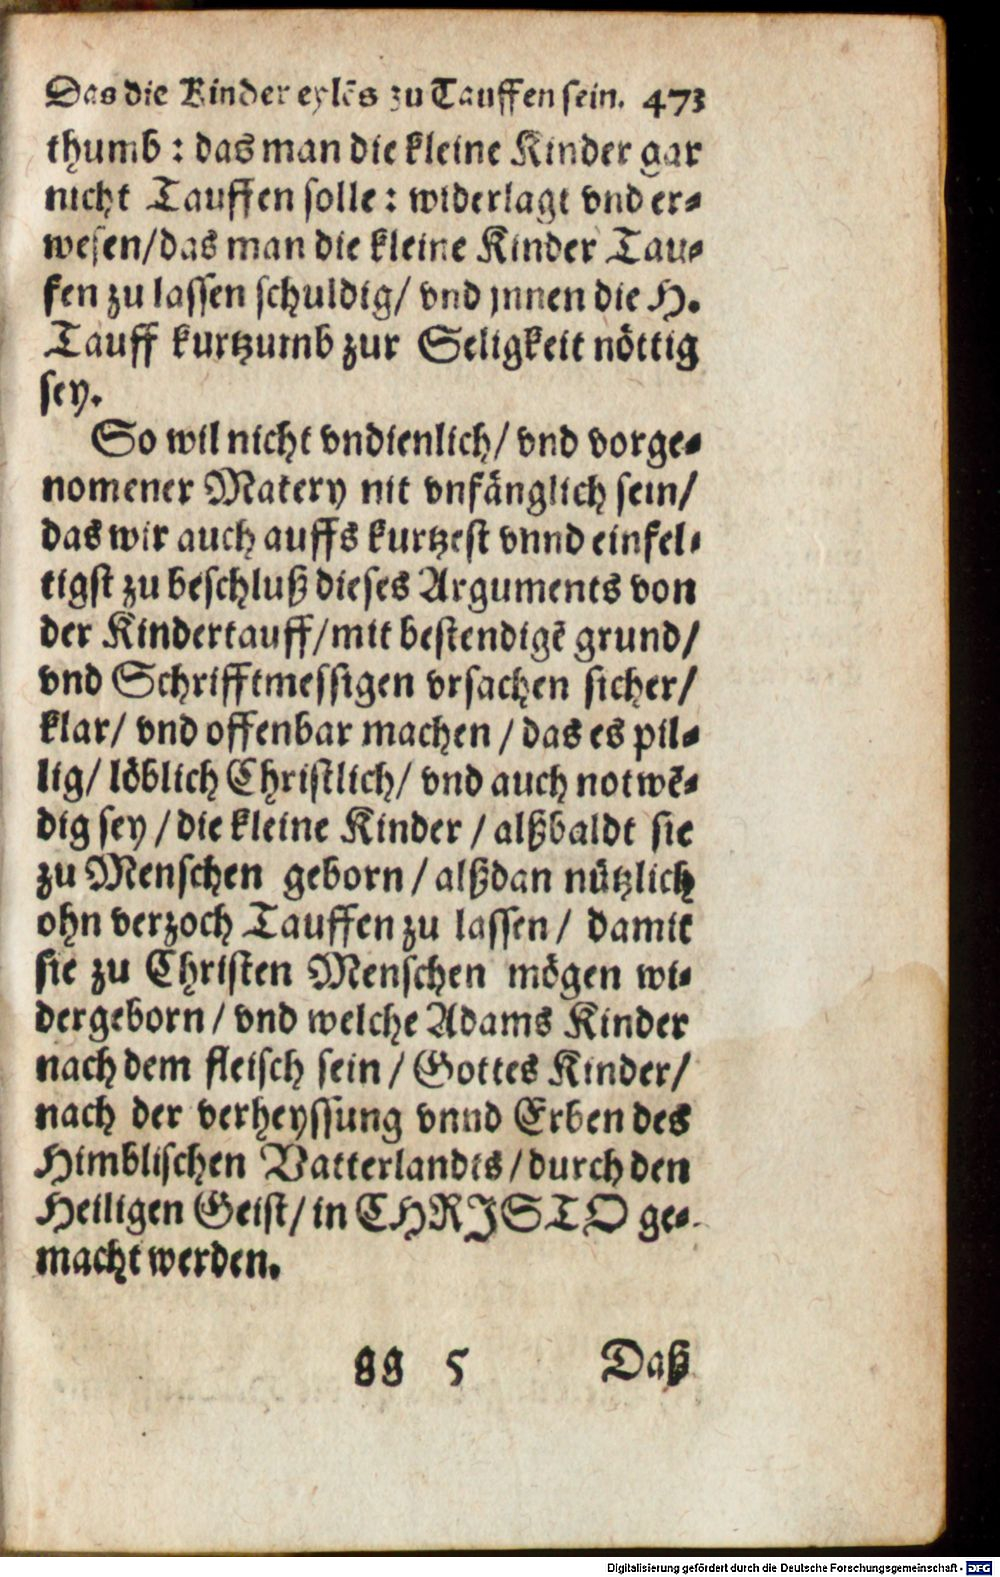 Das die Kinder eylẽs zu Tauffen sein. 473
thumb : das man die kleine Kinder gar
nicht Tauffen solle : widerlagt vnd er-
wesen/das man die kleine Kinder Tau-
fen zu lassen schuldig/ vnd jnnen die H.
Tauff kurtzumb zur Seligkeit nöttig
sey.
So wil nicht vndienlich/ vnd vorge-
nomener Matery nit vnfänglich sein/
das wir auch auffs kurtzest vnnd einfel-
tigst zu beschluß dieses Arguments von
der Kindertauff/mit bestendigẽ grund/
vnd Schrifftmessigen vrsachen sicher/
klar/ vnd offenbar machen / das es pil-
lig/ löblich Christlich/ vnd auch notwẽ-
dig sey / die kleine Kinder / alßbaldt sie
zu Menschen geborn / alßdan nützlich
ohn verzoch Tauffen zu lassen / damit
sie zu Christen Menschen mögen wi-
dergeborn / vnd welche Adams Kinder
nach dem fleisch sein / Gottes Kinder/
nach der verheyssung vnnd Erben des
Himblischen Vatterlandts / durch den
Heiligen Geist/ in CHRJSTO ge-
macht werden.
gg 5 Daß
Digitalisierung gefördert durch die Deutsche Forschungsgemeinschaft - DFG